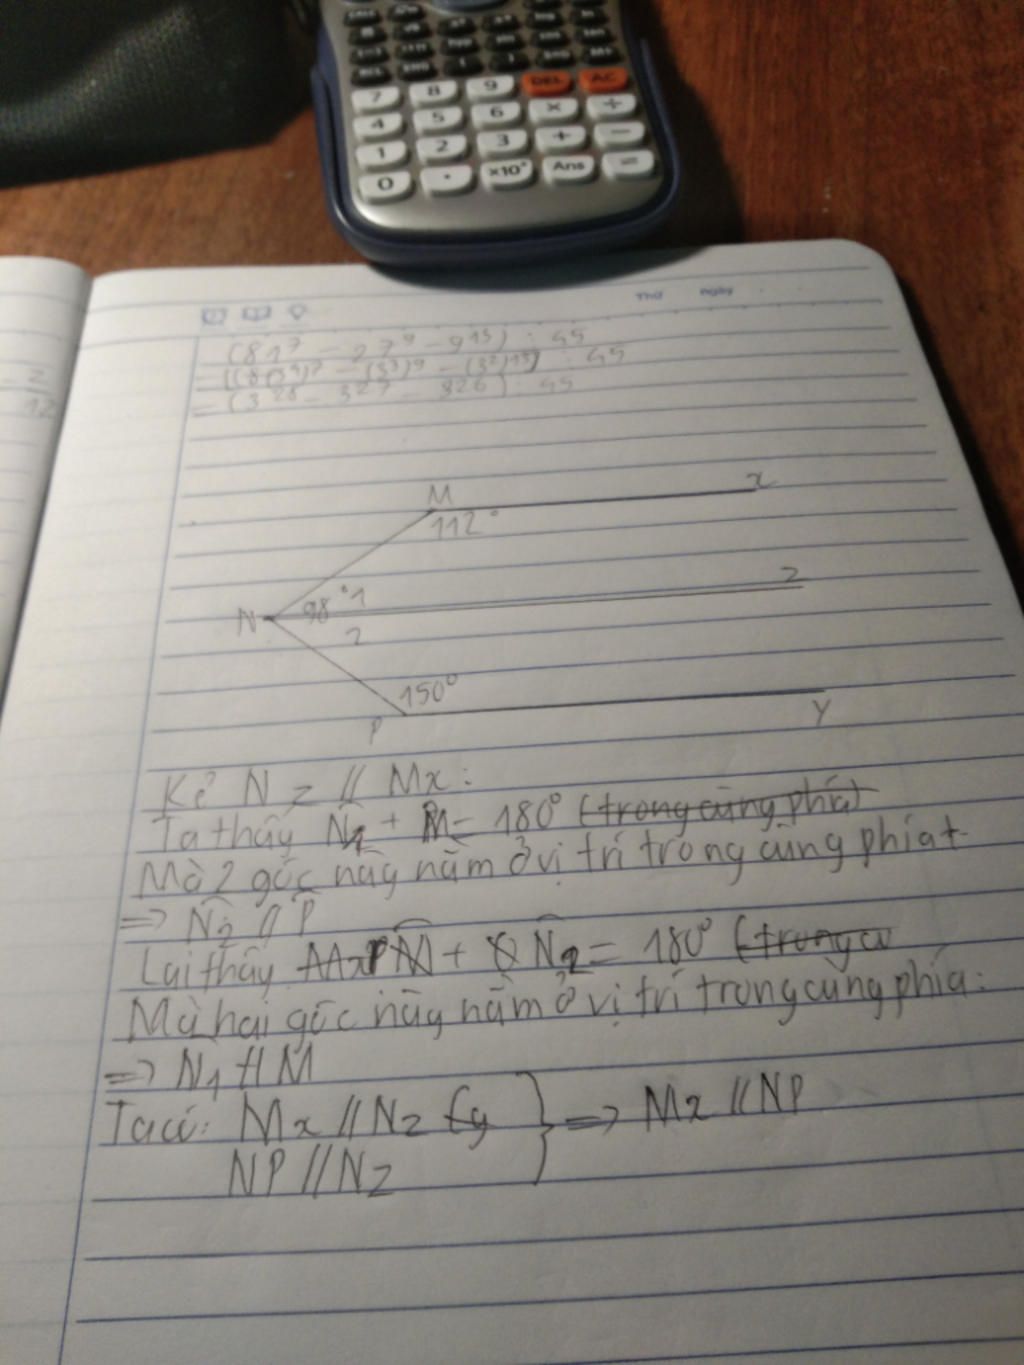 7 8 9 DEL AC
4 5 6 × ÷
1 2 3 + −
0 . ×10ˣ Ans =
Thứ ngày
(81⁷ − 27⁹ − 9¹³) : 45
− (3³)⁹ − (3²)¹³) : 45
= (3²⁸ − 3²⁷ − 326) : 45
M x
112°
N 98° 1 z
2
150°
P y
Kẻ Nz // Mx:
Ta thấy N1 + M = 180° (trong cùng phía)
Mà 2 góc này nằm ở vị trí trong cùng phía
=> N2 // P
Lại thấy M + N2 = 180° (trong cù
Mà hai góc này nằm ở vị trí trong cùng phía:
=> N1 // M
Ta có: Mx // Nz } => Mx // NP
NP // Nz